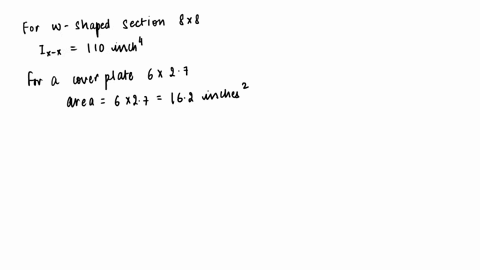 For w-shaped section 8x8
Ix-x = 110 inch⁴
For a cover plate 6 x 2.7
area = 6 x 2.7 = 16.2 inches²